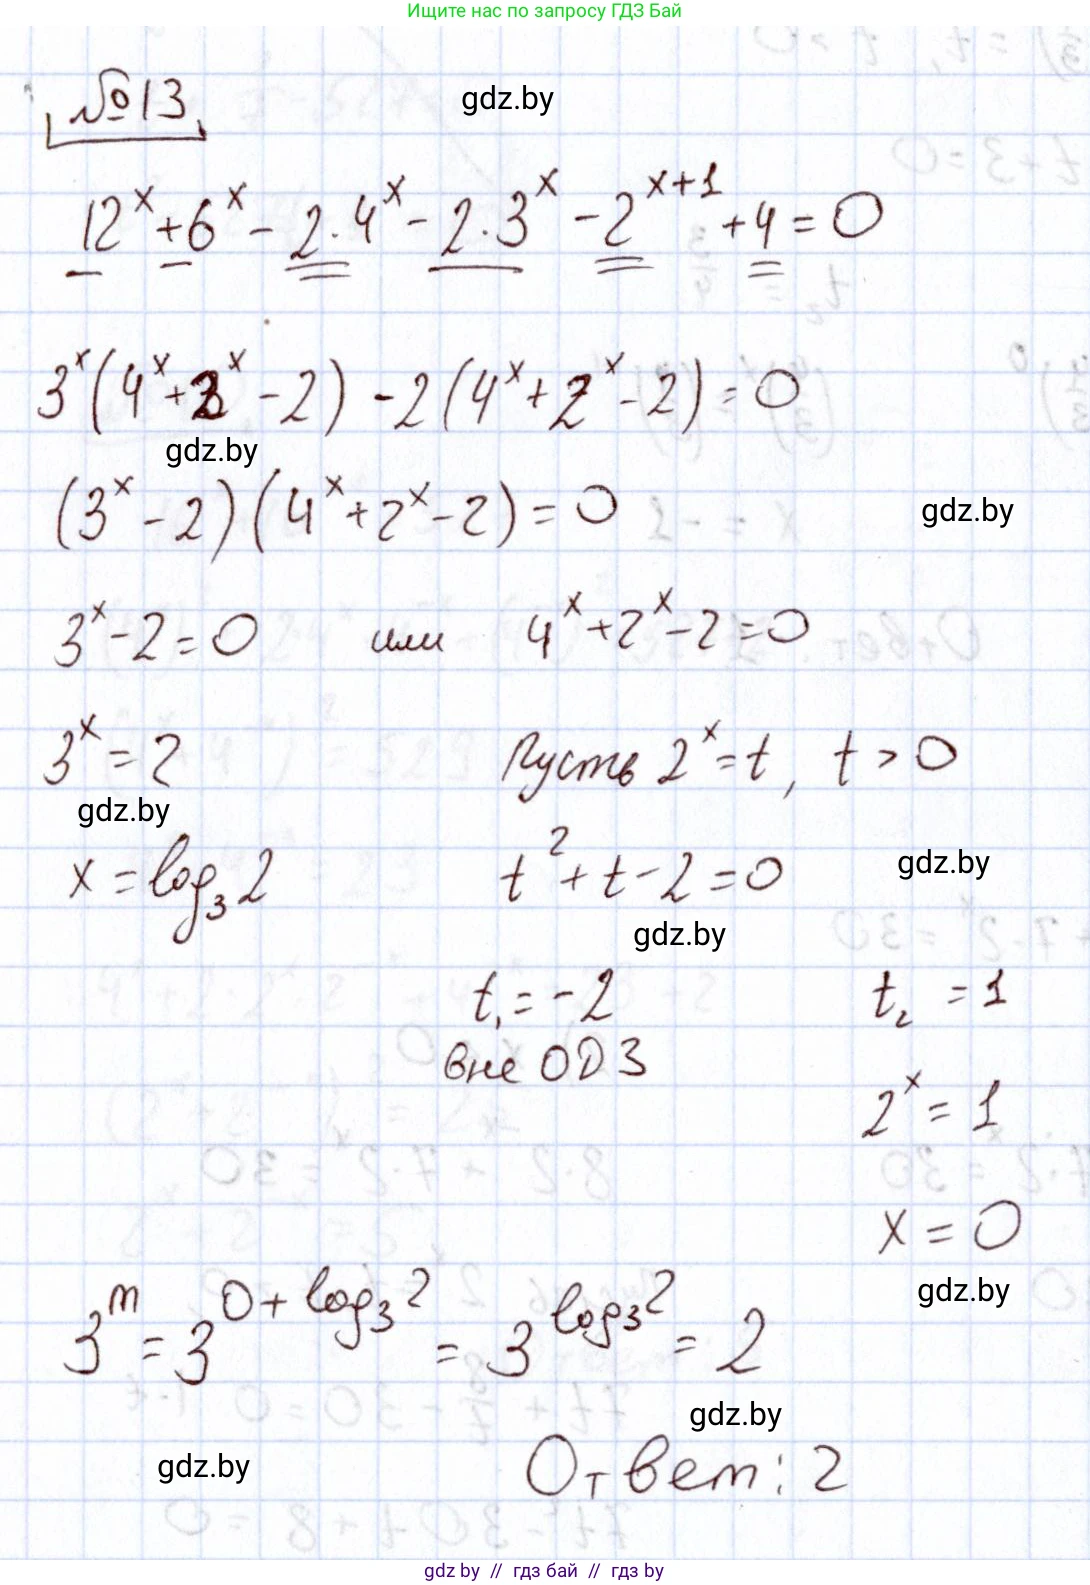 Ищите нас по запросу ГДЗ Бай
№13
gdz.by
12^x + 6^x - 2·4^x - 2·3^x - 2^{x+1} + 4 = 0
3^x(4^x + 2^x - 2) - 2(4^x + 2^x - 2) = 0
gdz.by
(3^x - 2)(4^x + 2^x - 2) = 0
gdz.by
3^x - 2 = 0 или 4^x + 2^x - 2 = 0
3^x = 2 Пусть 2^x = t, t > 0
gdz.by
x = log_3 2 t^2 + t - 2 = 0
gdz.by
gdz.by
t_1 = -2 t_2 = 1
вне ОДЗ
2^x = 1
x = 0
gdz.by
3^m = 3^{0 + log_3 2} = 3^{log_3 2} = 2
gdz.by
gdz.by
Ответ: 2
gdz.by // гдз бай // gdz.by